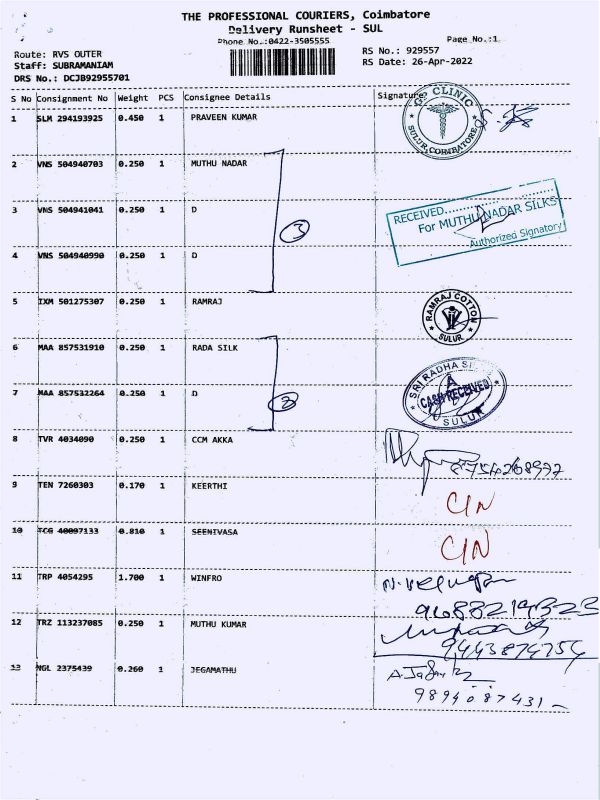 THE PROFESSIONAL COURIERS, Coimbatore
Delivery Runsheet - SUL
Phone No.:0422-3505555
Page No.:1
Route: RVS OUTER
RS No.: 929557
Staff: SUBRAMANIAM
RS Date: 26-Apr-2022
DRS No.: DCJB92955701
S No Consignment No Weight PCS Consignee Details Signature
1 SLM 294193925 0.450 1 PRAVEEN KUMAR
CLINIC
SULUR, COIMBATORE
2 VNS 504940703 0.250 1 MUTHU NADAR
3 VNS 504941041 0.250 1 D
3
RECEIVED..................
For MUTHU NADAR SILKS
Authorized Signatory
4 VNS 504940990 0.250 1 D
5 IXM 501275307 0.250 1 RAMRAJ
RAMRAJ COTTON
SULUR
6 MAA 857531910 0.250 1 RADA SILK
7 MAA 857532264 0.250 1 D
2
SRI RADHA
CASH RECEIVED
SULUR
8 TVR 4034090 0.250 1 CCM AKKA
8754268972
9 TEN 7260303 0.170 1 KEERTHI
C/N
10 TCG 40097133 0.810 1 SEENIVASA
C/N
11 TRP 4054295 1.700 1 WINFRO
9688219323
12 TRZ 113237085 0.250 1 MUTHU KUMAR
9443874754
13 NGL 2375439 0.260 1 JEGAMATHU
9894087431